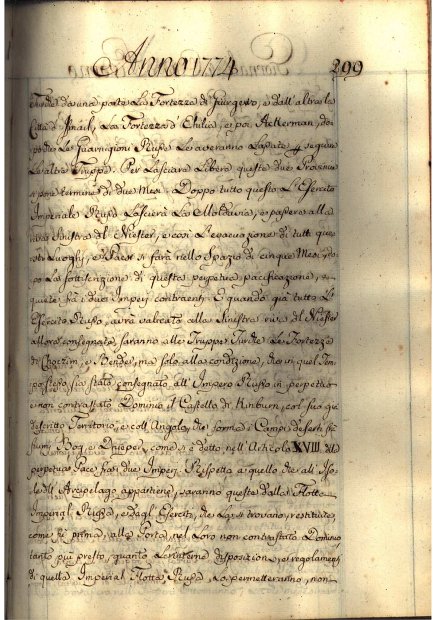 Anno 1774
299
Turche da una parte la Fortezza di Giurgevo, e dall'altra la
Città d'Ismail, la Fortezza d'Chilia, e poi Ackerman, do,
po che le Guarnigioni Russe le averanno lasciate p. seguire
le altre Truppe. Per lasciare libere queste due Provincie
si pone termine di due Mesi. Doppo tutto questo l'Esercito
Imperiale Russo lascierà la Moldavia, e passerà alla
riva sinistra del Niester, e così l'evacuazione di tutti que,
sti Luoghi, e Paesi si farà nello spazio di cinque Mesi do,
po la sottoscrizione di questa perpetua pacificazione, e
quiete frà i due Imperi contraenti. E quando già tutto l'
Esercito Russo, avrà valicato alla sinistra riva del Niester
allora consegnate saranno alle Truppe Turche le Fortezze
di Choczim, e Bender, ma solo alla condizione, che in quel Tem,
po stesso sia stato consegnato all'Impero Russo in perpetuo
e non contrastato Dominio il Castello di Kinburn, col suo qui
descritto Territorio, e coll'Angolo, che forma i Campi deserti frà
fiumi Bog, e Dnieper, come si è detto nell'Articolo XVIII della
perpetua Pace frà i due Imperi. Rispetto a quello che all'Iso,
le dell'Arcipelago appartiene, saranno queste dalla Flotta
Imperial Russa, e dagl'Eserciti, che là si trovano, restituite,
come sù prima, alla Porta, nel loro non contrastato Dominio
tanto più presto, quanto le interne disposizioni, e regolamenti
di quella Imperial Flotta Russa, lo permetteranno, non